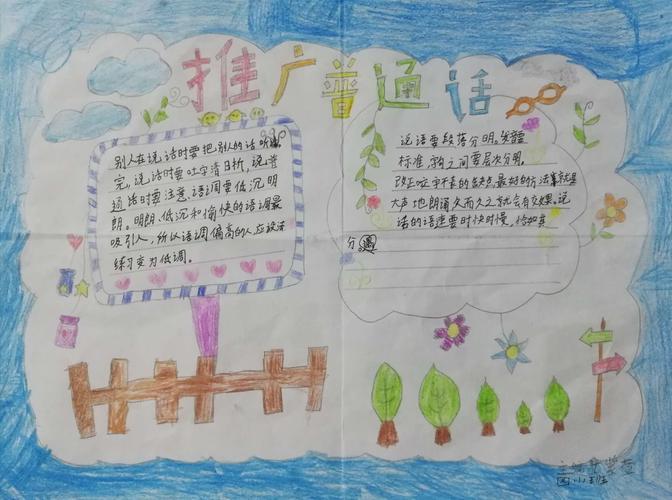 推广普通话
别人在说话时要把别人的话听
完。说话时要吐字清日析，说普
通话时要注意、语调要低沉明
朗。明朗、低沉和愉快的语调最
吸引人，所以语调偏高的人应该法
练习变为低调。
说话要段落分明。发音
标准，之间要层次分明。
改正咬字不清的缺点最好的方法就是
大声地朗诵久而久之就会有效果。说
话的语速要时快时慢，恰如其
分
四小班